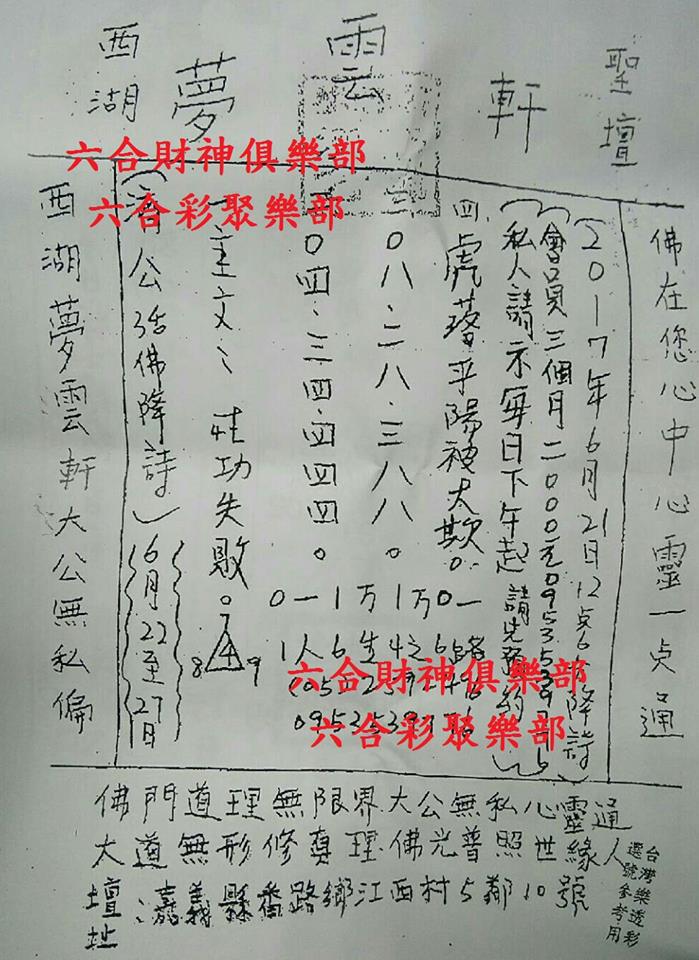 西湖夢雲軒聖壇
佛在您心中心靈一点通
(2017年6月21日12点6分降詩)
(會員三個月二000元
(私人請示每日下午起請先預約)
四.虎落平陽被犬欺。
三0八.二八.三八八。
二0四.三四.四四四。
一主文:成功失敗。
(濟公活佛降詩)6月22至27日
西湖夢雲軒大公無私偏
0一1万1万0一
1人6生4之6路
8 4 9
六合財神俱樂部
六合彩聚樂部
六合財神俱樂部
六合彩聚樂部
佛門道理無限界.大公無私心靈通
大道無形修真理.佛光普照世緣人
壇址:嘉義縣番路鄉江西村5鄰10號
台灣樂透彩
選號參考用